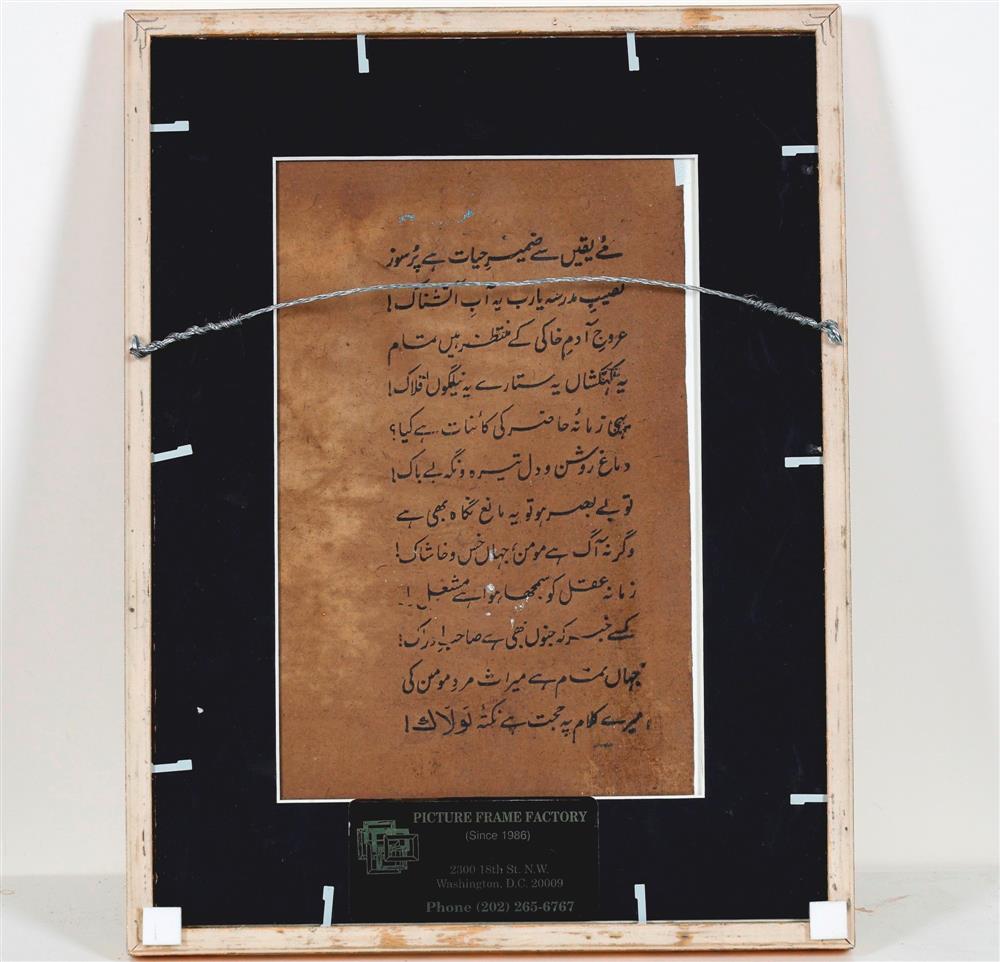 مئے یقیں سے ضمیرِ حیات ہے پُرسوز
نصیبِ مدرسہ یارب یہ آبِ آتشناک!
عروجِ آدمِ خاکی کے منتظر ہیں تمام
یہ کہکشاں یہ ستارے یہ نیلگوں افلاک!
یہی زمانۂ حاضر کی کائنات ہے کیا؟
دماغ روشن و دل تیرہ و نگہ بے باک!
تو بے بصر ہو تو یہ مانع نگاہ بھی ہے
وگرنہ آگ ہے مومن، جہاں خس و خاشاک!
زمانہ عقل کو سمجھا ہوا ہے مشعل
کسے خبر کہ جنوں بھی ہے صاحبِ ادراک!
جہاں تمام ہے میراث مردِ مومن کی
میرے کلام پہ حجت ہے نکتۂ لَولَاک!
PICTURE FRAME FACTORY
(Since 1986)
2300 18th St. N.W.
Washington, D.C. 20009
Phone (202) 265-6767